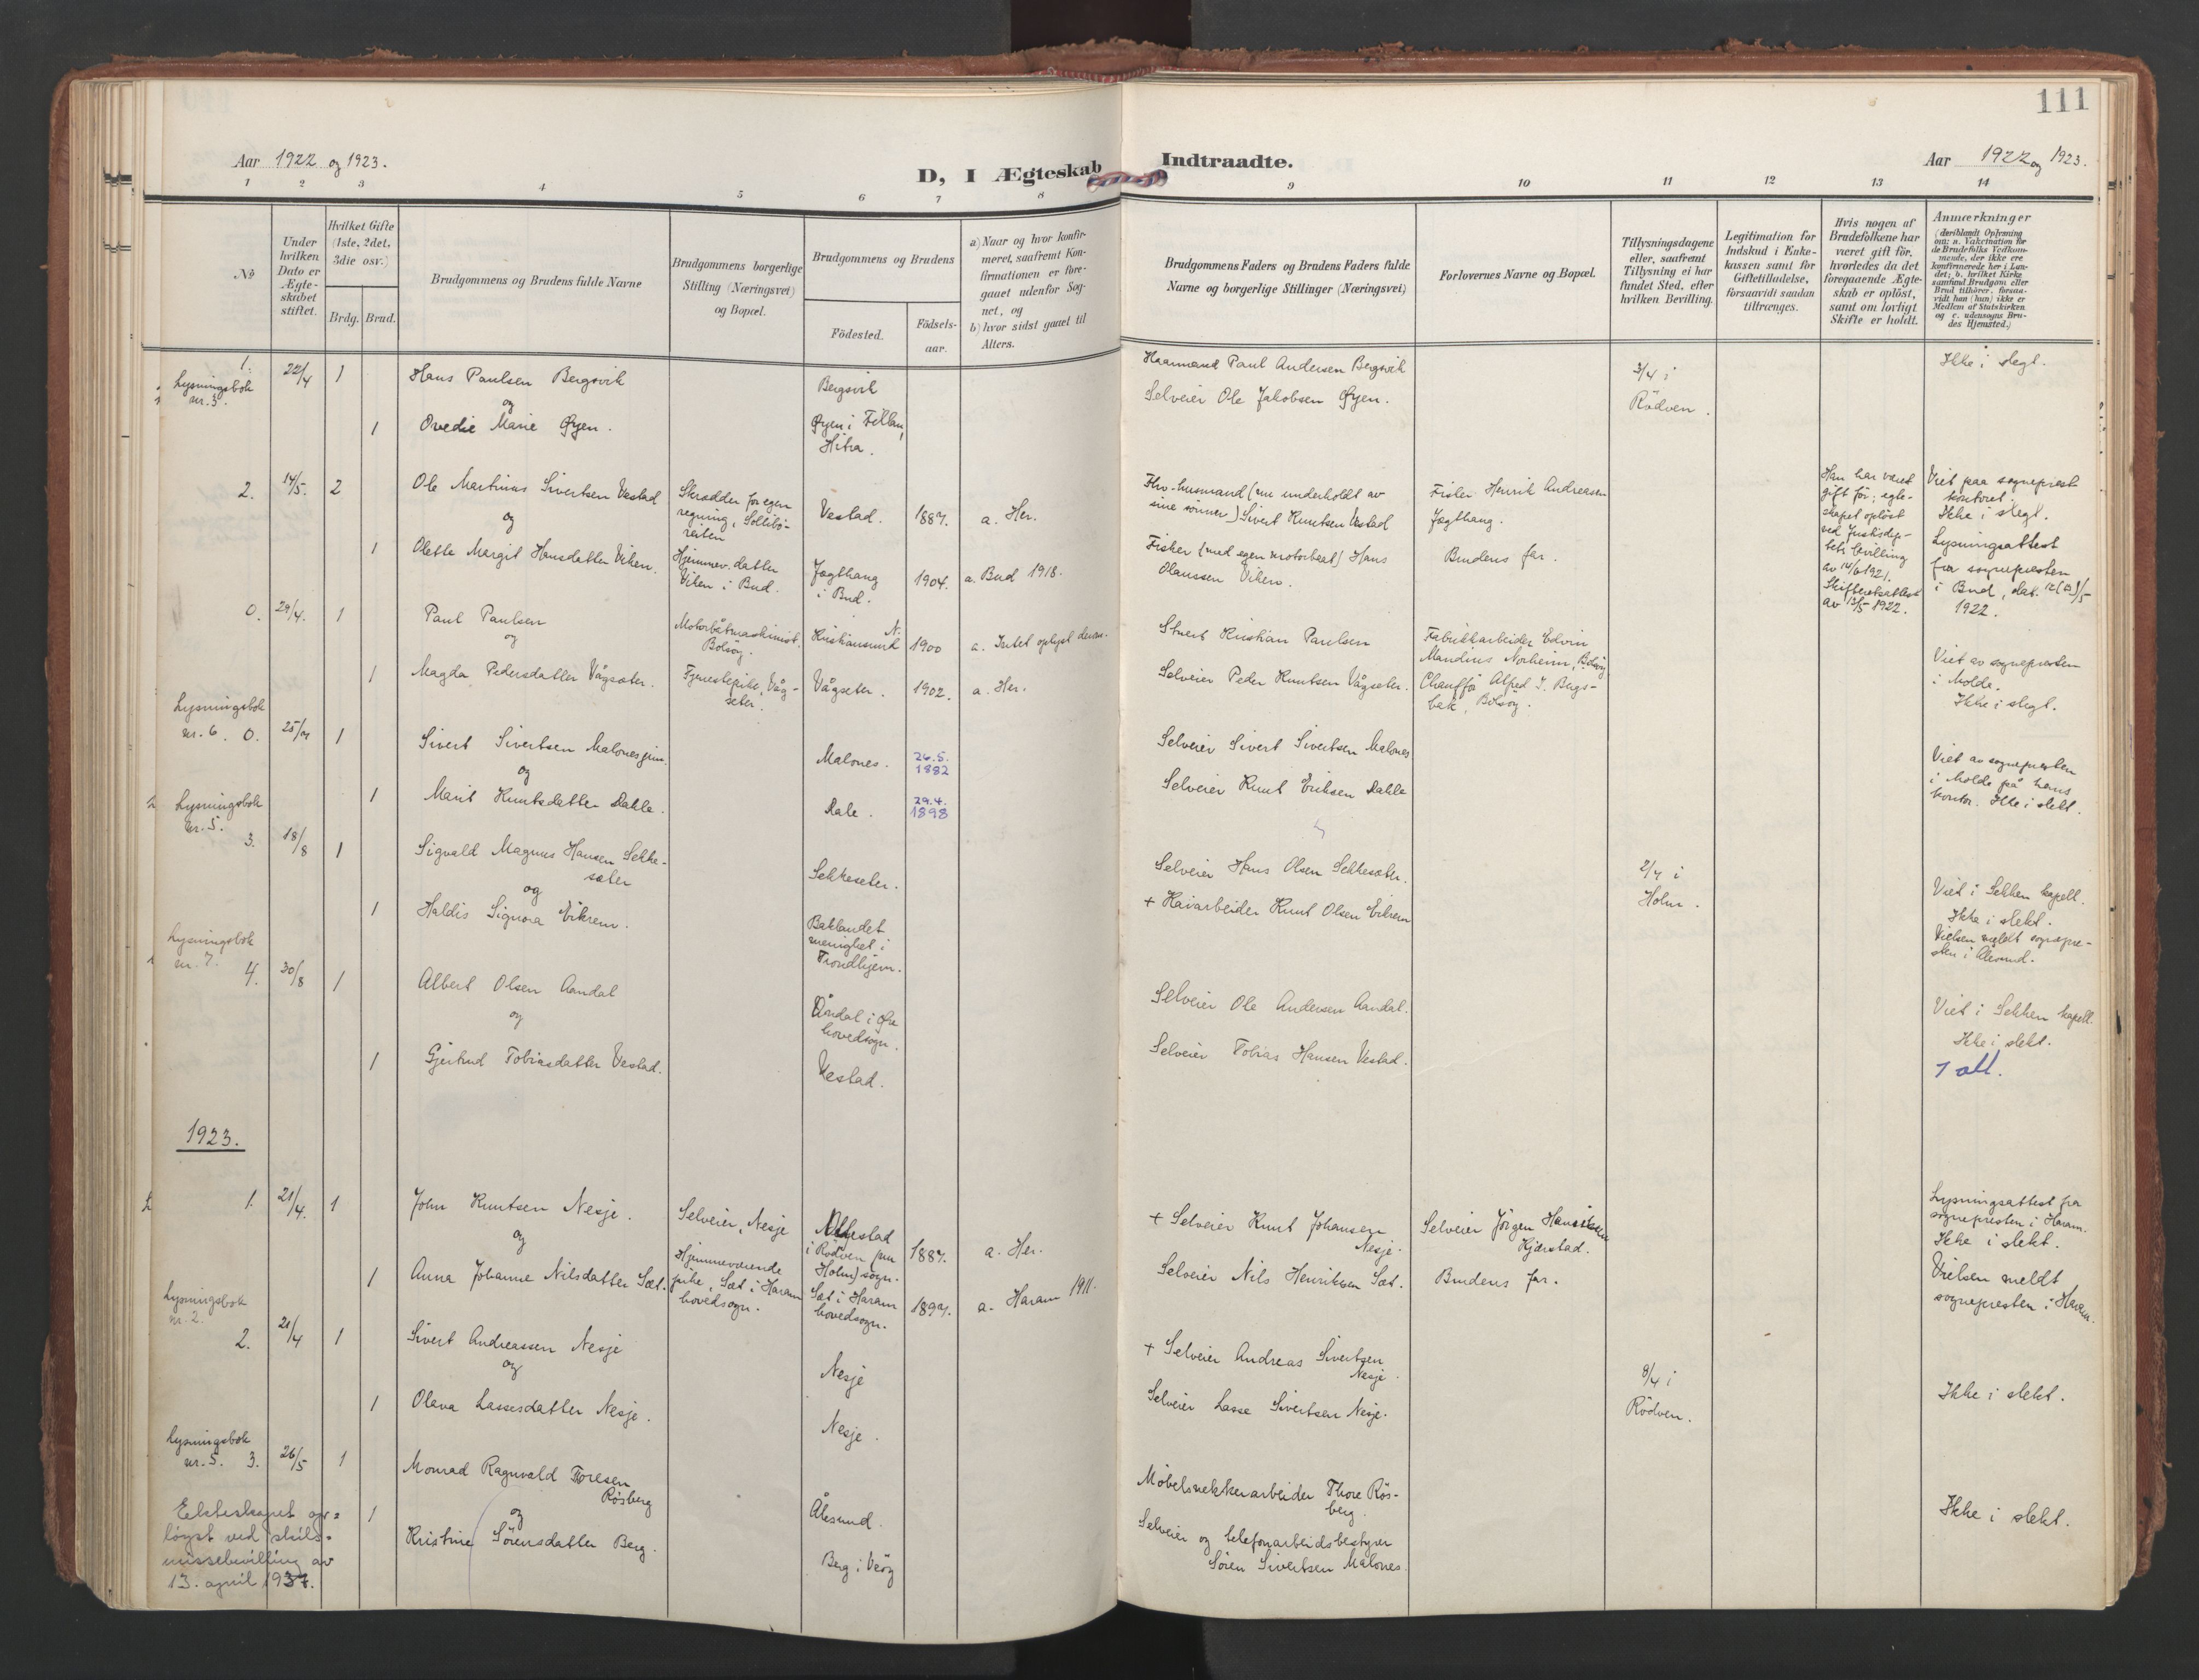 111
Aar 1922 og 1923.
D, I Ægteskab Indtraadte.
Aar 1922 og 1923.
1 2 3 4 5 6 7 8 9 10 11 12 13 14
No
Under hvilken Dato er Ægteskabet stiftet.
Hvilket Gifte (1ste, 2det, 3die osv.)
Brdg. Brud.
Brudgommens og Brudens fulde Navne
Brudgommens borgerlige Stilling (Næringsvei) og Bopæl.
Brudgommens og Brudens
Födested.
Födselsaar.
a) Naar og hvor konfirmeret, saafremt Konfirmationen er foregaaet udenfor Sognet, og
b) hvor sidst gaaet til Alters.
Brudgommens Faders og Brudens Faders fulde Navne og borgerlige Stillinger (Næringsvei)
Forlovernes Navne og Bopæl.
Tillysningsdagene eller, saafremt Tillysning ei har fundet Sted, efter hvilken Bevilling.
Legitimation for Indskud i Enkekassen samt for Giftetilladelse, forsaavidt saadan tiltrænges.
Hvis nogen af Brudefolkene har været gift før, hvorledes da det foregaaende Ægteskab er oplöst, samt om lovligt Skifte er holdt.
Anmærkninger
(deriblandt Oplysning om: a. Vakcination for de Brudefolks Vedkommende, der ikke ere konfirmerede her i Landet; b. hvilket Kirkesamfund Brudgom eller Brud tilhörer, forsaavidt han (hun) ikke er Medlem af Statskirken og c. udensogns Brudes Hjemsted.)
1. 22/4 1 Hans Paulsen Bergsvik Bergsvik Paul Andersen Bergsvik 3/4 i Rödven. Ikke i slegt.
Lysningsbok nr. 3.
og
1 Ovedie Marie Øyen. Øyen i Fillan, Hitra. Selveier Ole Jakobsen Øyen.
2. 14/5. 2 Ole Martinus Sivertsen Vestad Skrædder for egen regning, Vestad. 1887. a. Her. Fhv. husmand (nu underholdt av sine sønner) Sivert Knutsen Vestad Fisker Henrik Andreasen Jægthaug. Han har været gift før; egteskapet opløst ved Justisdep-tets bevilling av 14/6 1921. Skifteretsattest av 12/5 1922. Viet paa sogneprestkontoret. Ikke i slegt. Lysningsattest fra sognepresten i Bud, dat. 12/5 1922.
og
1 Olette Margit Hansdatter Viken. Hjemmev. datter Viken i Bud. Jægthaug i Bud. 1904. a. Bud 1918. Fisker (med egen motorbaat) Hans Olaussen Viken. Brudens far.
0. 29/4. 1 Paul Paulsen Motorbåtmaskinist. Bolsöy. Kristiansund N. 1900 a. Intet oplyst derom. Stuert Kristian Paulsen Fabrikkarbeider Edvin Mandius Norheim, Bolsöy Viet av sognepresten i Molde. Ikke i slegt.
og
1 Magda Pedersdatter Vågsæter. Tjenestepike, Vågseter. Vågseter. 1902. a. Her. Selveier Peder Knutsen Vågseter. Chauffør Alfred J. Bolsöy.
Lysningsbok nr. 6. 0. 25/ 1 Sivert Sivertsen Malones. 26.5. 1882 Selveier Sivert Sivertsen Malones Viet av sognepresten i Molde på hans kontor. Ikke i slekt.
og
1 Marit Knutsdatter Dahle. Dale. 29.4. 1898 Selveier Knut Eriksen Dahle
Lysningsbok nr. 5. 3. 18/8 1 Sigvald Magnus Hansen Sekkesæter Sekkeseter. Selveier Hans Olsen Sekkesæter. 2/7 i Holm. Viet i Sekken kapell. Ikke i slekt. Vielsen meldt sognepresten i Ålesund.
og
1 Haldis Signora Eikrem. Baklandet menighet i Trondhjem. + Kaiarbeider Knut Olsen Eikrem
Lysningsbok nr. 7. 4. 30/8 1 Albert Olsen Aandal Åndal i Øre hovedsogn. Selveier Ole Andersen Aandal. Viet i Sekken kapell. Ikke i slekt.
og
1 Gjertrud Tobiasdatter Vestad. Vestad. Selveier Tobias Hansen Vestad.
7 alt.
1923.
1. 21/4. 1 John Knutsen Nesje. Selveier, Nesje i Rödven (nu Holm) sogn. 1887. a. Her. + Selveier Knut Johansen Nesje. Selveier Jörgen Hansen Kjærstad. Lysningsattest fra sognepresten i Haram. Ikke i slekt. Vielsen meldt sognepresten i Haram.
og
1 Anna Johanne Nilsdatter Sæt. Hjemmeværende pike, Sæt i Haram hovedsogn. Sæt i Haram hovedsogn. 1897. a. Haram 1911. Selveier Nils Henriksen Sæt. Brudens far.
Lysningsbok nr. 2.
2. 21/4 1 Sivert Andreassen Nesje Nesje + Selveier Andreas Sivertsen Nesje. 8/4 i Rödven. Ikke i slekt.
og
1 Olava Lassesdatter Nesje. Nesje. Selveier Lasse Sivertsen Nesje.
Lysningsbok nr. 5. 3. 26/5 1 Monrad Ragnvald Toresen Rösberg Ålesund. Möbelsnekkerarbeider Thore Rösberg. Ikke i slekt.
og
1 Kristine Sörensdatter Berg. Berg i Veöy Selveier og telefonarbeidsbestyrer Sören Sivertsen Malones.
Ekteskapet opløst ved skilsmissebevilling av 13. april 1937.